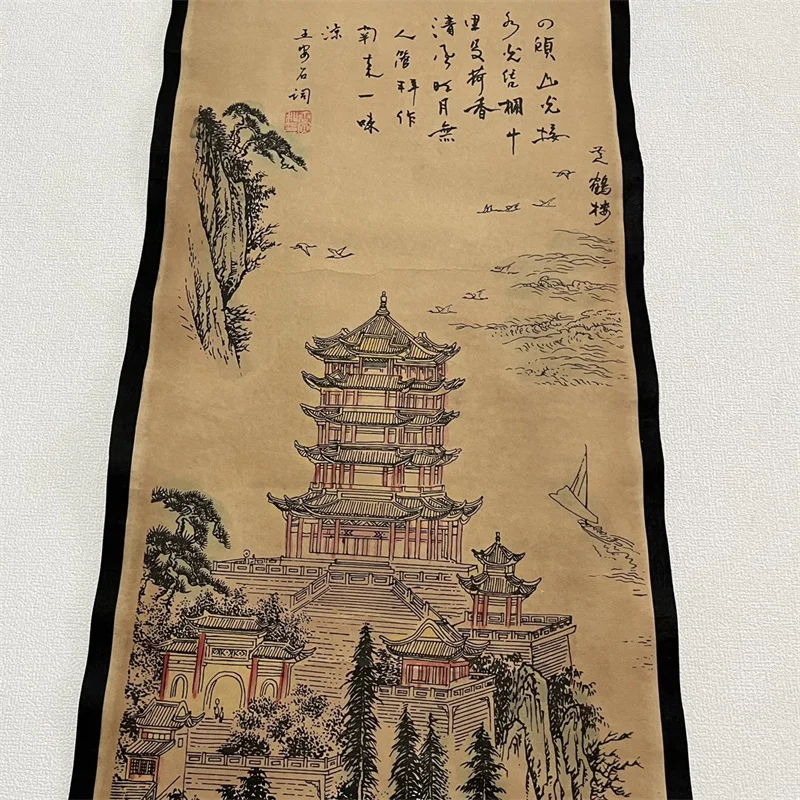 黄鶴楼
四顾山光接
水光凭栏十
里芰荷香
清风明月無
人管并作
南来一味
凉
王安石词